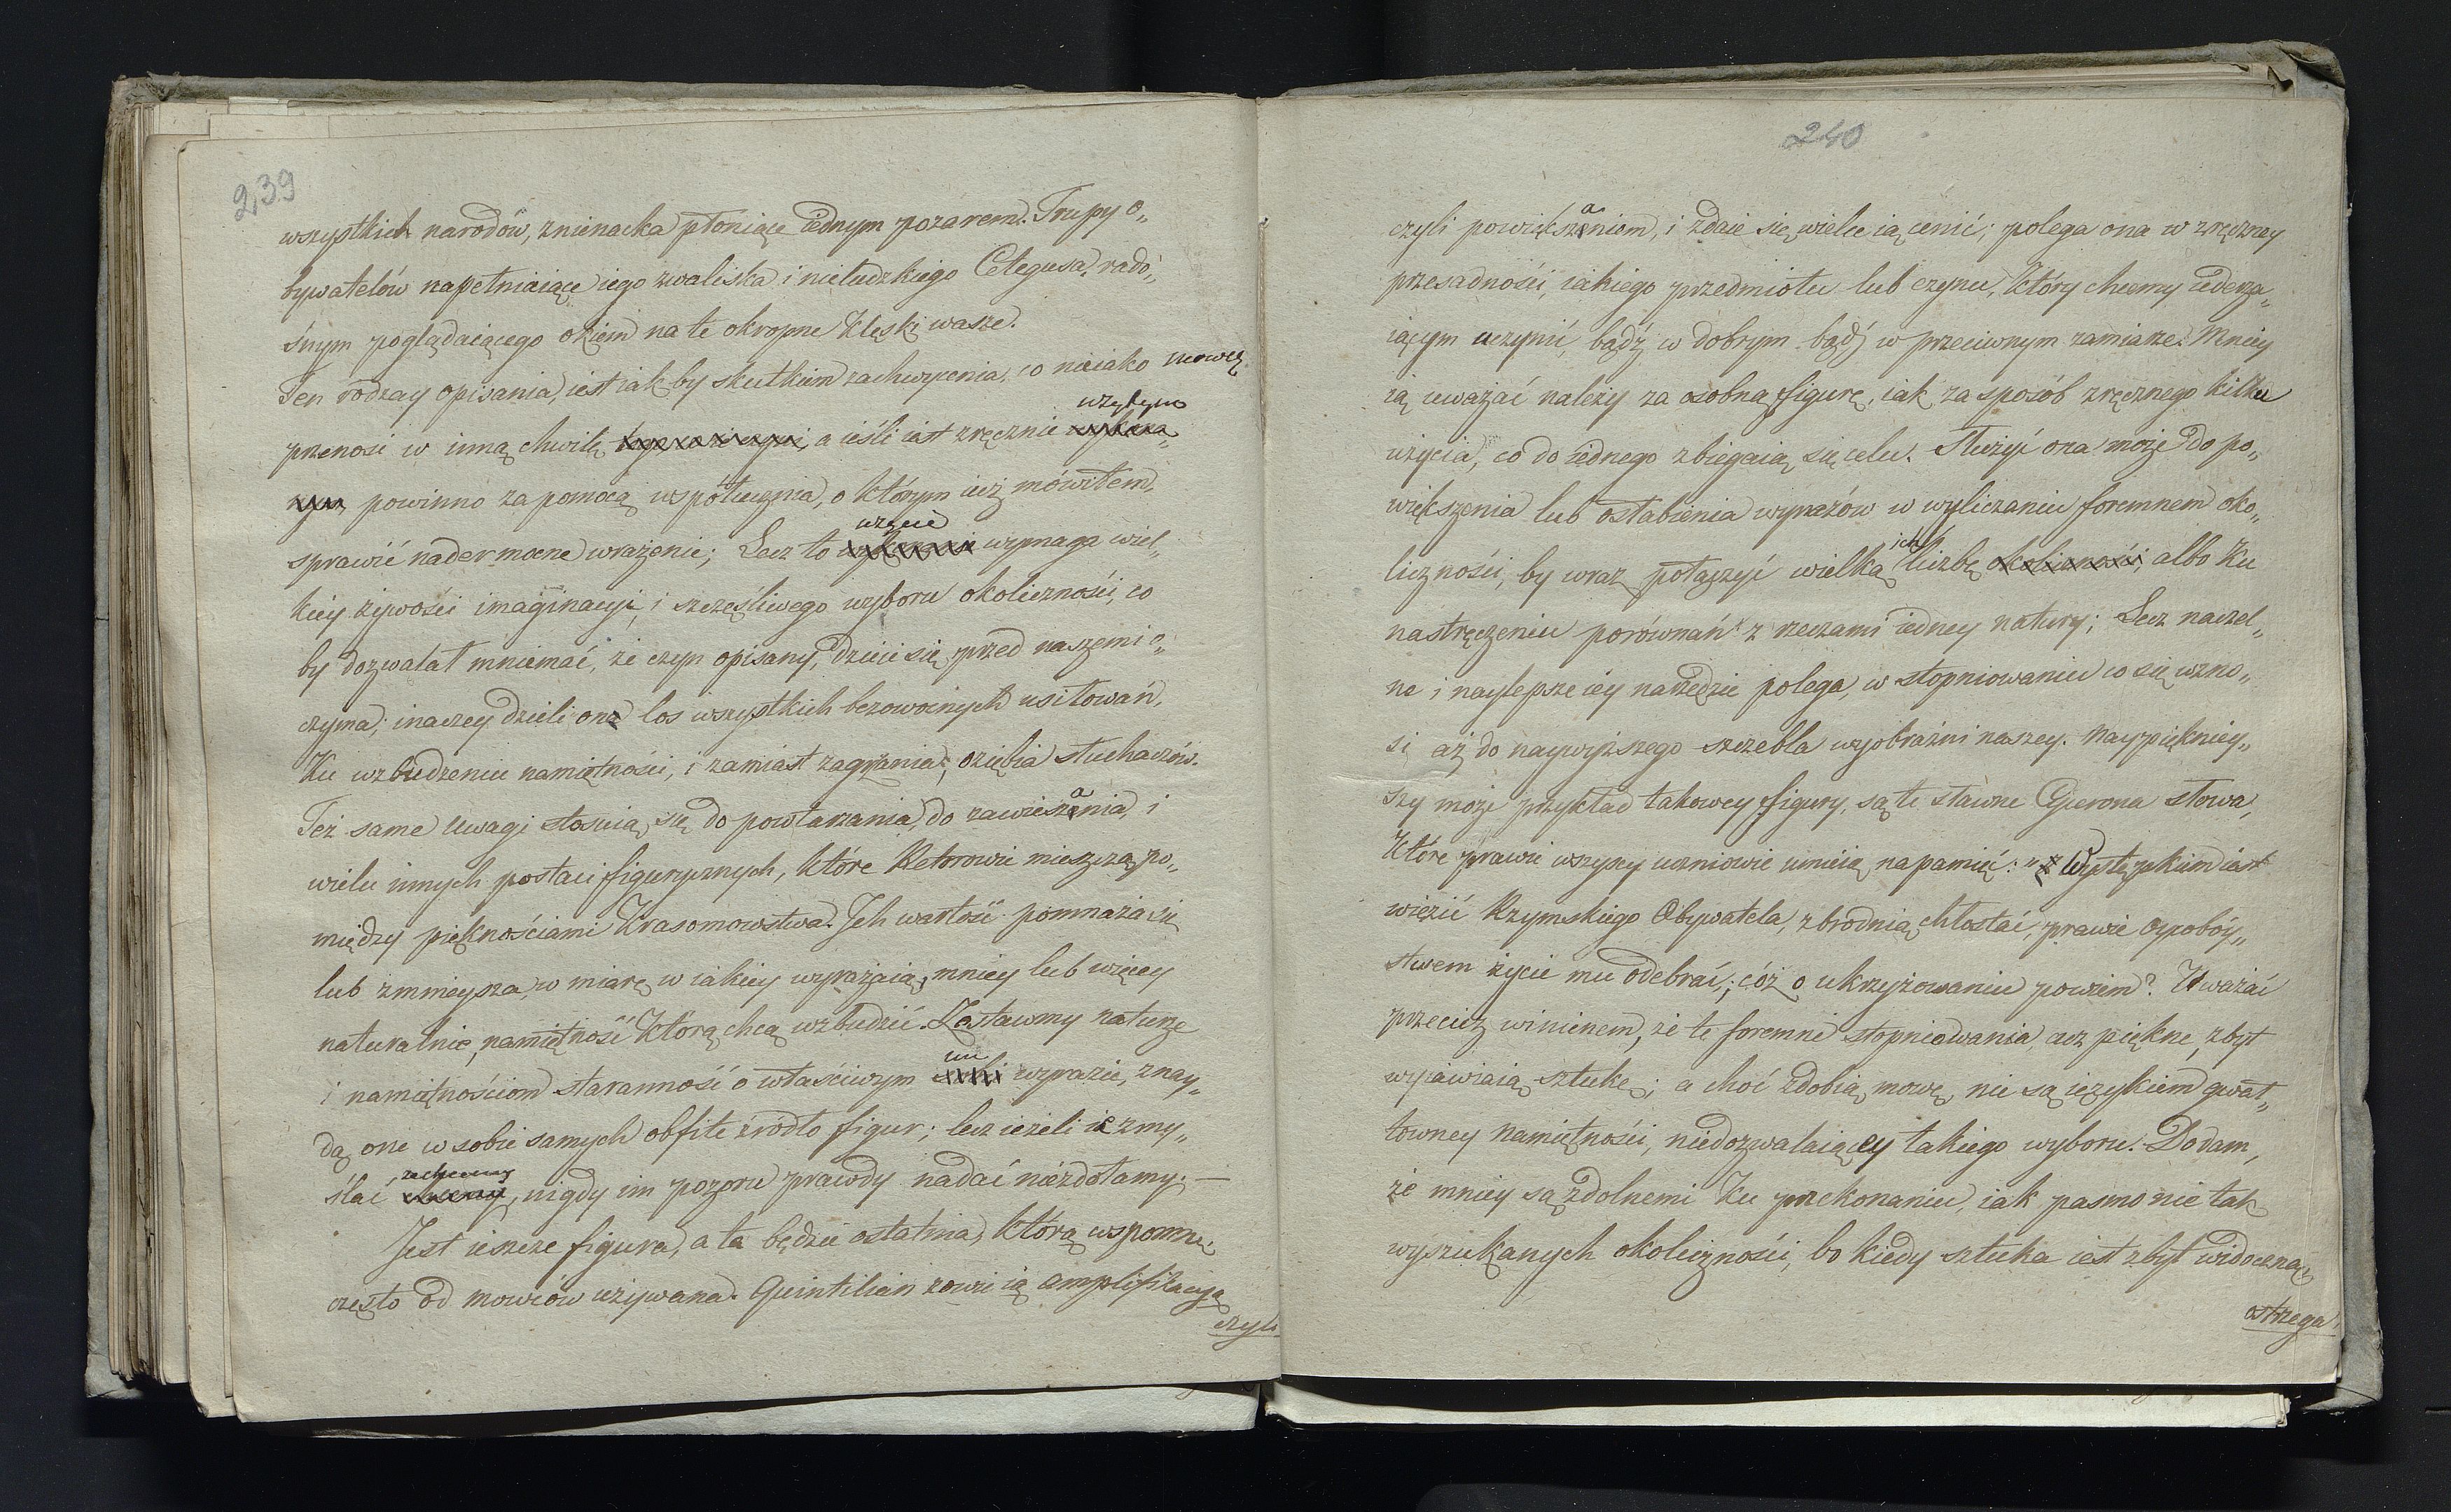 239
wszystkich narodów, znienacka płoniące iednym pozarem. Trupy o„
bywatelów napełniaiące iego zwaliska i nieludzkiego Cetegusa, rado„
śnym poglądaiącego okiem na te okropne klęski wasze.
Ten rodzay opisania, iest iak by skutkiem zachwycenia, co nieiako mowcę
przenosi w inną chwilę, a ieśli iest zręcznie użytym
powinno za pomocą współuczucia, o którym iuż mówiłem,
sprawić nader mocne wrażenie; Lecz to użycie wymaga wiel„
kiey żywości imaginacyi, i szczęśliwego wyboru okoliczności, co
by dozwalał mniemać, że czyn opisany, dzieie się przed naszemi o„
czyma; inaczey dzieli ona los wszystkich bezowocnych usiłowań,
Ku wzbudzeniu namiętności, i zamiast zagrzania, oziębia słuchaczów.
Też same uwagi stosuią się do powtarzania, do zawieszania, i
wielu innych postaci figurycznych, które Retorowie mieszczą po„
między pięknościami Krasomowstwa. Ich wartość pomnaża się
lub zmnieysza, w miarę w iakiey wyrażaią, mniey lub więcey
naturalnie, namiętność którą chcą wzbudzić. Zostawmy naturze
i namiętnościom staranność o właściwym im wyrazie, znay„
dą one w sobie samych obfite źródło figur; lecz ieżeli ie zmy„
ślać zechcemy, nigdy im pozoru prawdy nadać niezdołamy. —
Jest ieszcze figura, a ta będzie ostatnia, którą wspomnę,
często od mowców używana. Quintilian zowie ią amplifikacyą
czyli
240
czyli powiększaniem, i zdaie się wielce ią cenić; polega ona w zręczney
przesadności, iakiego przedmiotu lub czynu, który chcemy uderza„
iącym uczynić, bądź w dobrym bądź w przeciwnym zamiarze. Mniey
ią uważać należy za osobną figurę, iak za sposób zręcznego kilku
użycia, co do iednego zbiegaią się celu. Służyć ona może do po„
większenia lub osłabienia wyrazów w wyliczaniu foremnem oko„
liczności, by wraz połączyć wielką ich liczbę okoliczności, albo Ku
nastręczeniu porównań z rzeczami iedney natury; Lecz naczel„
ne i naylepsze iey narzędzie polega, w stopniowaniu co się wzno„
si aż do naywyższego szczebla wyobraźni naszey. Naypiękniey„
szy może przykład takowey figury, są te sławne Cycerona słowa,
Które prawie wszyscy uczniowie umieią na pamięć: „Występkiem iest
więzić Rzymskiego Obywatela, zbrodnią chłostać, prawie oycobóy„
stwem życie mu odebrać; cóż o ukrzyżowaniu powiem? Uważać
przecież winienem, że te foremne stopniowania, acz piękne, zbyt
wyiawiaią sztukę; a choć zdobią mowę, nie są ięzykiem gwał„
towney namiętności, niedozwalaiącey takiego wyboru. Dodam,
że mniey są zdolnemi Ku przekonaniu, iak pasmo nie tak
wyszukanych okoliczności, bo kiedy sztuka iest zbyt widoczną,
ostrzega